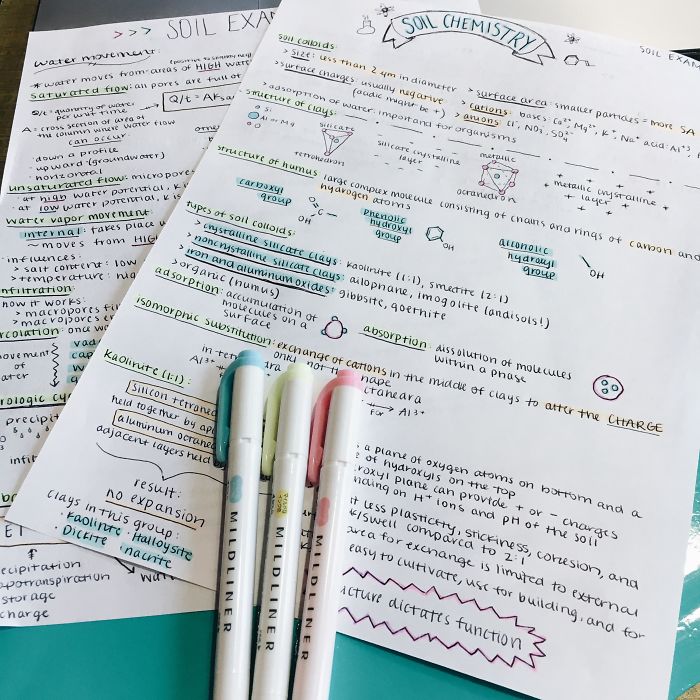 >>> SOIL EXA
water movement:
* water moves from areas of HIGH wat
saturated flow: all pores are full of
Q/t = quantity of water
per unit time
Q/t = AKsa
A = cross section of area of
the column where water flow
can occur:
· down a profile
· upward (groundwater)
· horizontal
unsaturated flow: micropores
· at high water potential, K is
· at low water potential, K is
water vapor movement:
internal: takes place w
~ moves from HIG
· influences:
> salt content: low
> temperature: hig
infiltration:
how it works:
> macropores fil
> macropores e
rcolation: once wa
movement
of
water
vad
cap
rologic cy
precipit
infil
ET
ecipitation
apotranspiration
storage
charge
wat
SOIL EXAM
SOIL CHEMISTRY
soil colloids:
> size: less than 2 μm in diameter
> surface charges: usually negative
(acidic might be +)
> adsorption of water: important for organisms
> surface area: smaller particles = more SA
> cations: bases: Ca²⁺, Mg²⁺, K⁺, Na⁺ acid: Al³⁺
> anions: Cl⁻, NO₃⁻, SO₄²⁻
structure of clays:
Si
O
Al or Mg
silicate
tetrahedron
silicate crystalline
layer
metallic
octahedron
metallic crystalline
layer
structure of humus: large complex molecule consisting of chains and rings of carbon and
hydrogen atoms
carboxyl
group
OH
C
O
phenolic
hydroxyl
group
OH
alcoholic
hydroxyl
group
OH
types of soil colloids:
> crystalline silicate clays: kaolinite (1:1), smectite (2:1)
> noncrystalline silicate clays: allophane, imogolite (andisols!)
> iron and aluminum oxides: gibbsite, goethite
> organic (humus)
adsorption: accumulation of
molecules on a
surface
absorption: dissolution of molecules
within a phase
isomorphic substitution: exchange of cations in the middle of clays to alter the CHARGE
in tet
only, not the shape
octahedra
Al³⁺
for Al³⁺
Kaolinite (1:1):
silicon tetrahed
held together by ap
aluminum octahed
adjacent layers held
result:
no expansion
clays in this group:
· Kaolinite · Halloysite
· Dickite · nacrite
s a plane of oxygen atoms on bottom and a
e of hydroxyls on the top
roxyl plane can provide + or - charges
nding on H⁺ ions and pH of the soil
t less plasticity, stickiness, cohesion, and
k/swell compared to 2:1
area for exchange is limited to external
easy to cultivate, use for building, and for
ucture dictates function
MILDLINER
MILDLINER
MILDLINER